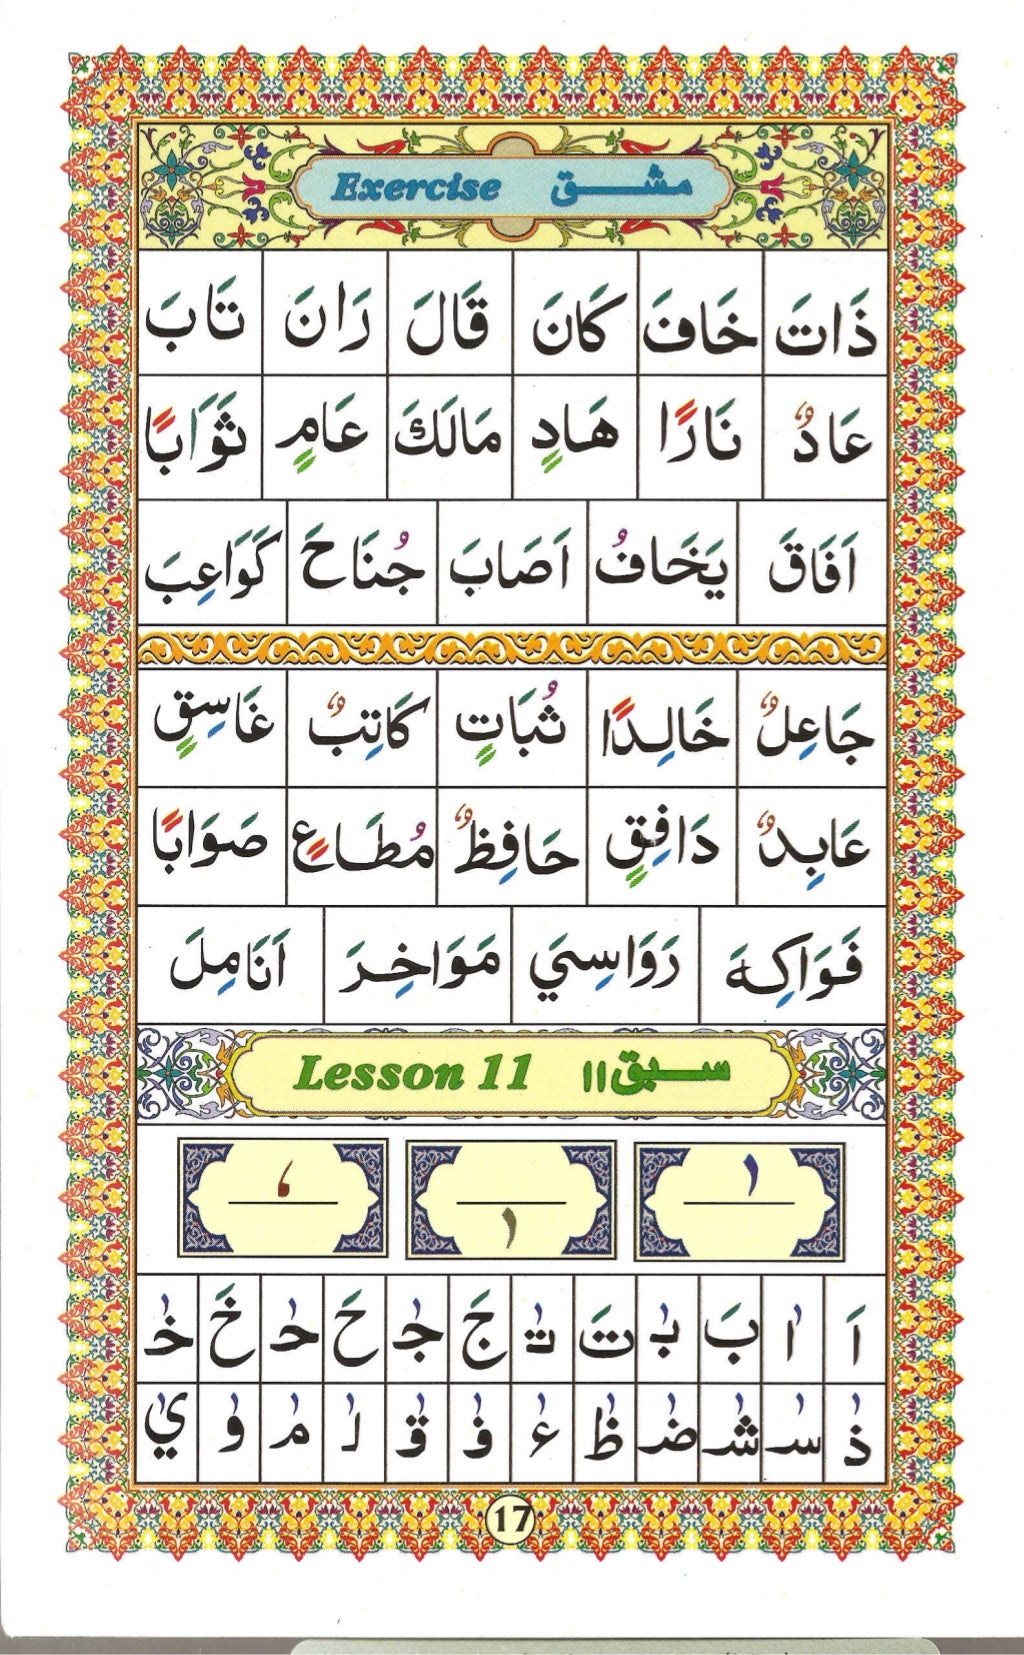 Exercise مشق
ذَاتَ خَافَ كَانَ قَالَ رَانَ تَابَ
عَادٌ نَارًا هَادٍ مَالَكَ عَامٍ ثَوَابًا
اَفَاقَ يَخَافُ اَصَابَ جُنَاحَ كَوَاعِبَ
جَاعِلٌ خَالِدًا ثُبَاتٍ كَاتِبٌ غَاسِقٍ
عَابِدٌ دَافِقٍ حَافِظٌ مُطَاعٍ صَوَابًا
فَوَاكِهَ رَوَاسِيَ مَوَاخِرَ اَنَامِلَ
Lesson 11 سبق ١١
اَ اٰ بَ بٰ تَ تٰ جَ جٰ حَ حٰ خَ خٰ
ذٰ سٰ شٰ ضٰ ظٰ ءٰ فٰ قٰ لٰ مٰ وٰ يٰ
17